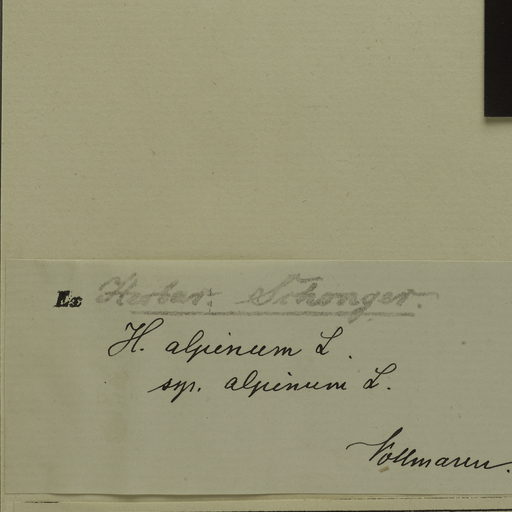 Ex Herbar. Schonger.
H. alpinum L.
ssp. alpinum L.
Vollmann.